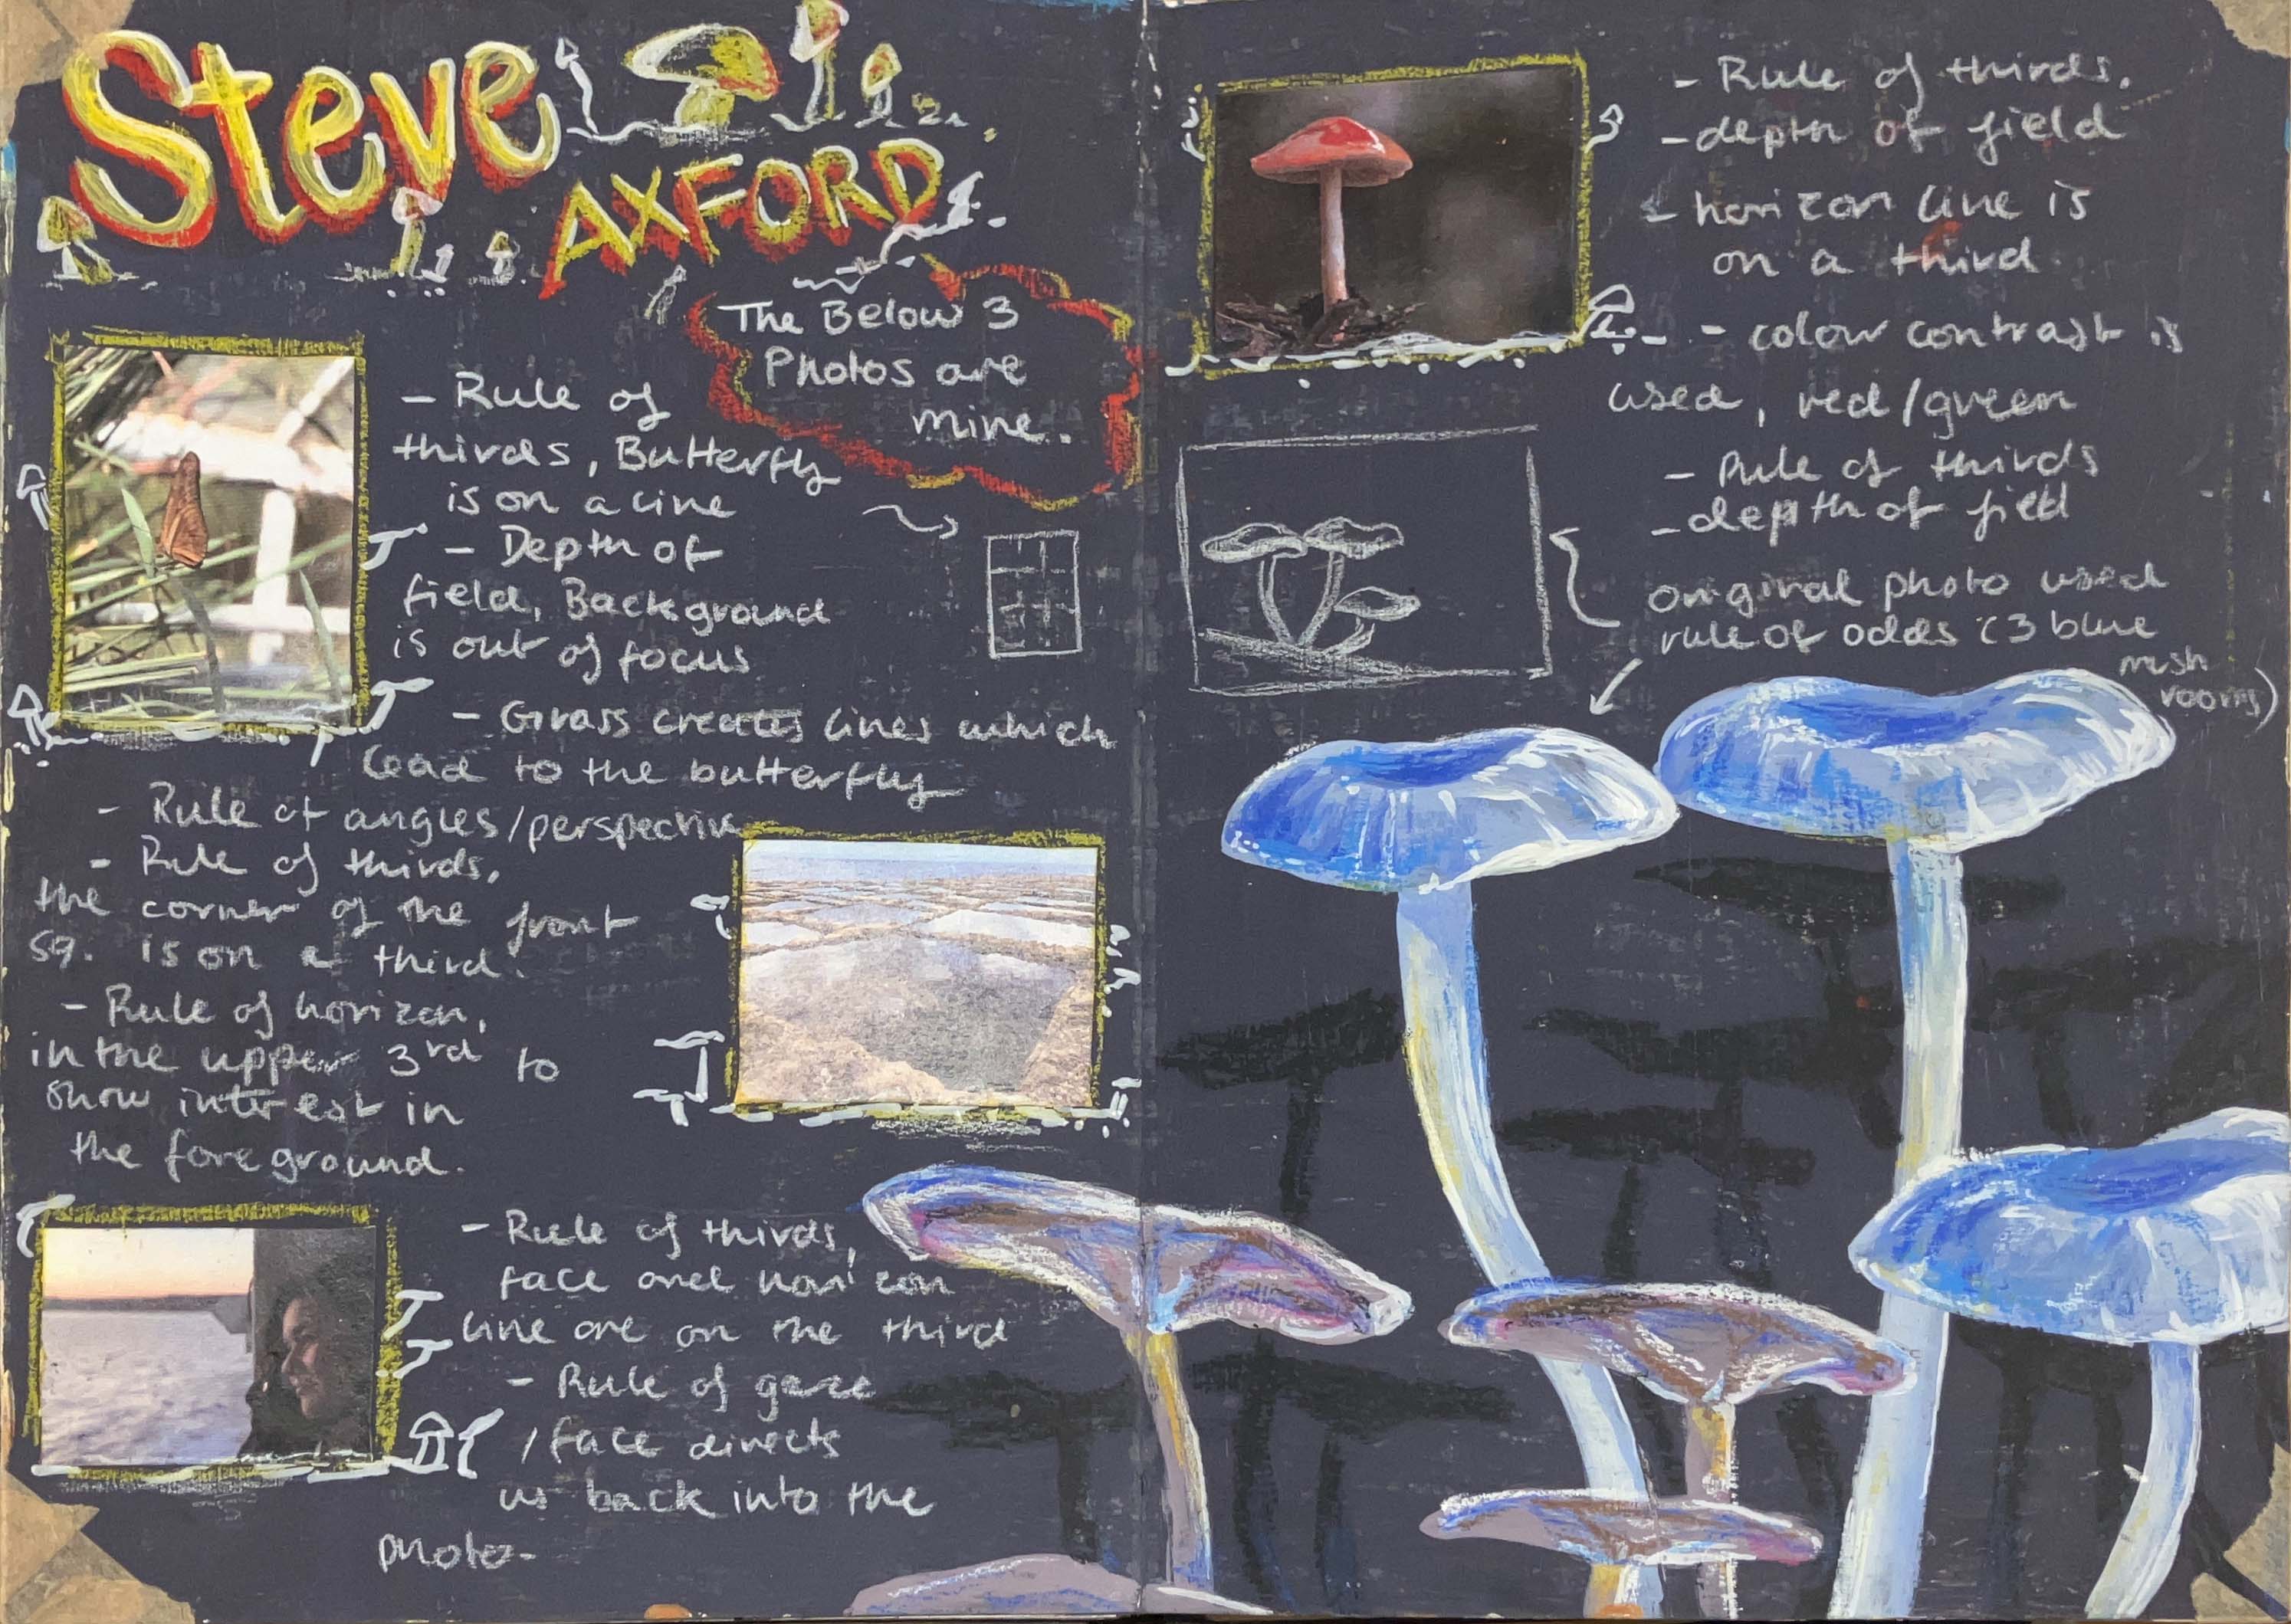 Steve
AXFORD
The Below 3
Photos are
mine.
- Rule of
thirds, Butterfly
is on a line
- Depth of
field, Background
is out of focus
- Grass creates lines which
lead to the butterfly
- Rule of angles/perspective
- Rule of thirds,
the corner of the front
sq. is on a third.
- Rule of horizon,
in the upper 3rd to
show interest in
the foreground.
- Rule of thirds,
face and horizon
line are on the third
- Rule of gaze
/face directs
us back into the
photo-
- Rule of thirds.
- depth of field
- horizon line is
on a third
- colour contrast is
used, red/green
- Rule of thirds
- depth of field
original photo used
rule of odds (3 blue
mush
rooms)